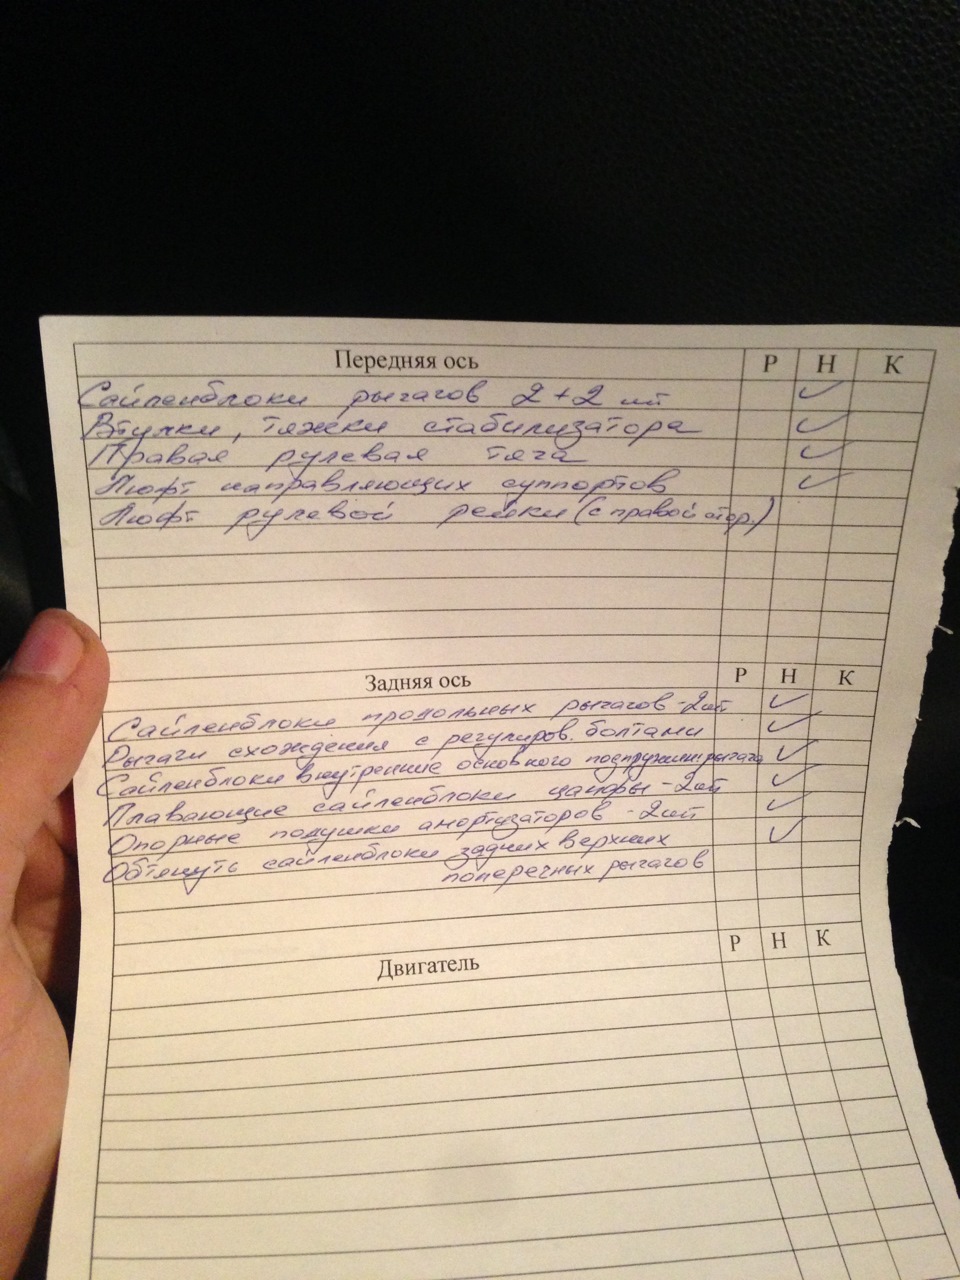 Передняя ось Р Н К
Сайленблоки рычагов 2+2 шт
Втулки, тяжки стабилизатора
Правая рулевая тяга
Люфт направляющих суппортов
Люфт рулевой рейки (с правой стор.)
Задняя ось Р Н К
Сайленблоки продольных рычагов -2шт
Рычаги схождения с регулиров. болтами
Сайленблоки внутренние основного подпружин. рычага
Плавающие сайленблоки цапфы -2шт
Опорные подушки амортизаторов -2шт
Обтянуть сайленблоки задних верхних
поперечных рычагов
Двигатель Р Н К